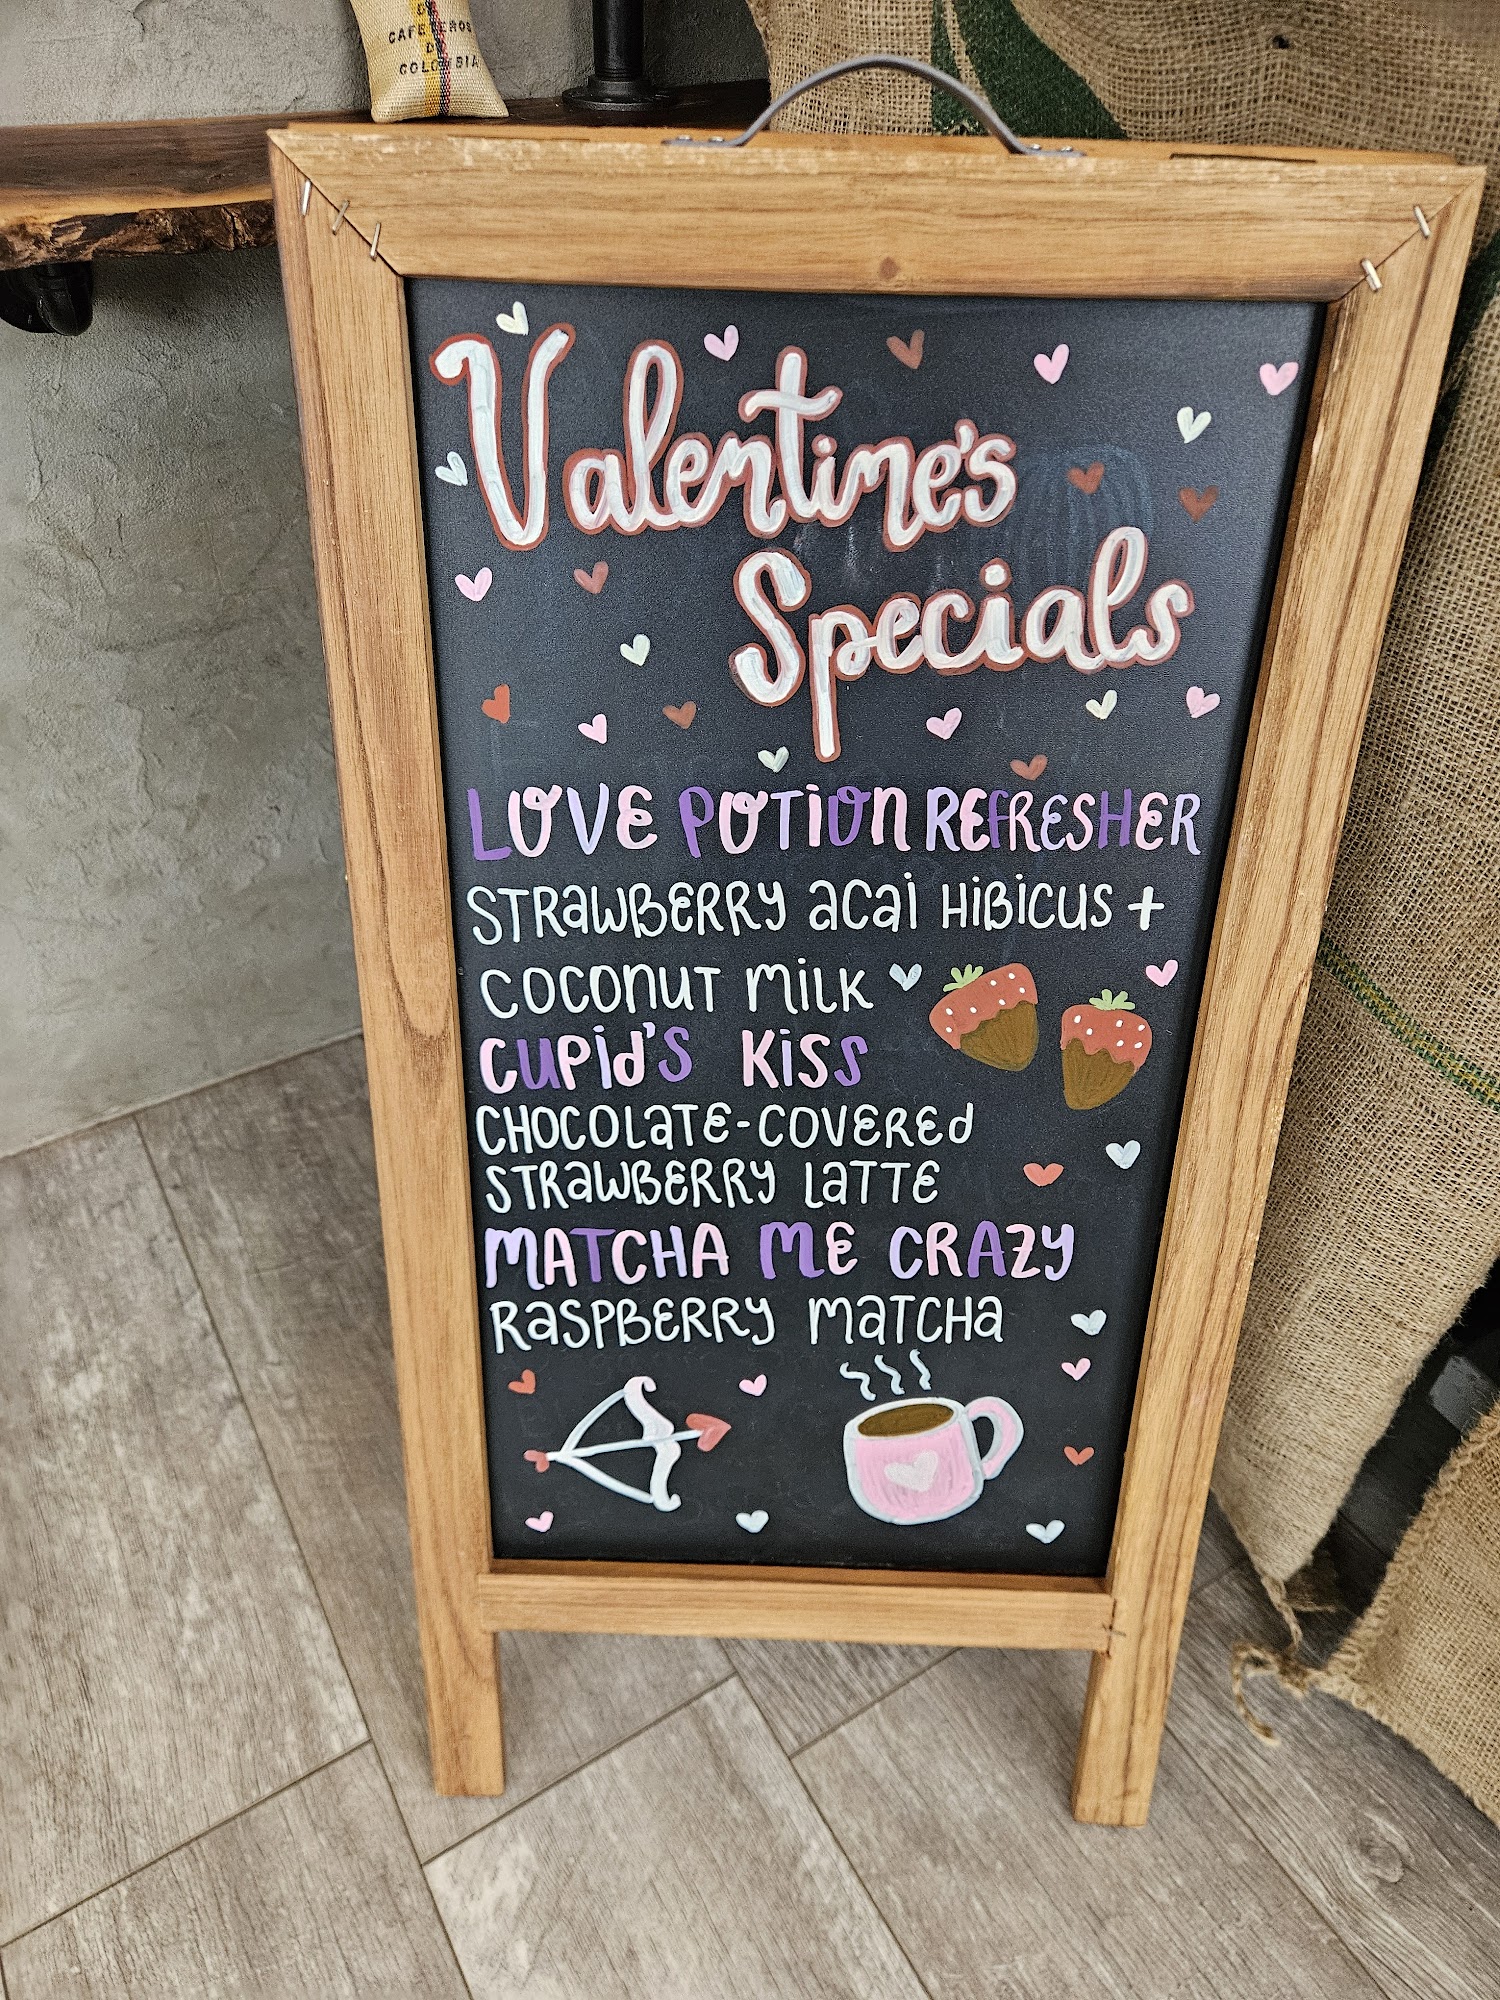 DE
CAFETEROS
DE
COLOMBIA
Valentine's
Specials
LOVE POTION REFRESHER
STRAWBERRY ACAI HIBICUS +
COCONUT MILK
CUPID'S KISS
CHOCOLATE-COVERED
STRAWBERRY LATTE
MATCHA ME CRAZY
RASPBERRY MATCHA